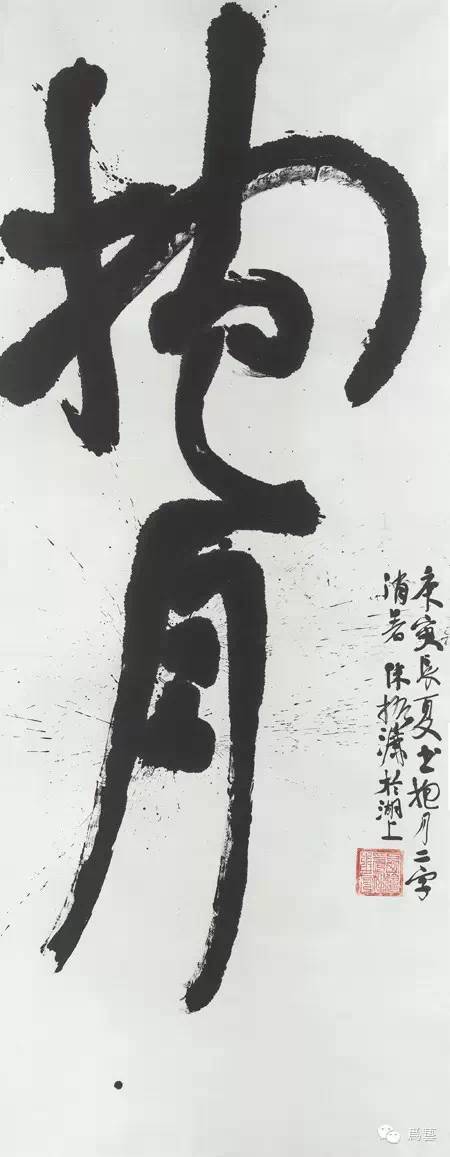 抱月
庚寅長夏書抱月二字
消暑 陳振濂於湖上
爲藝